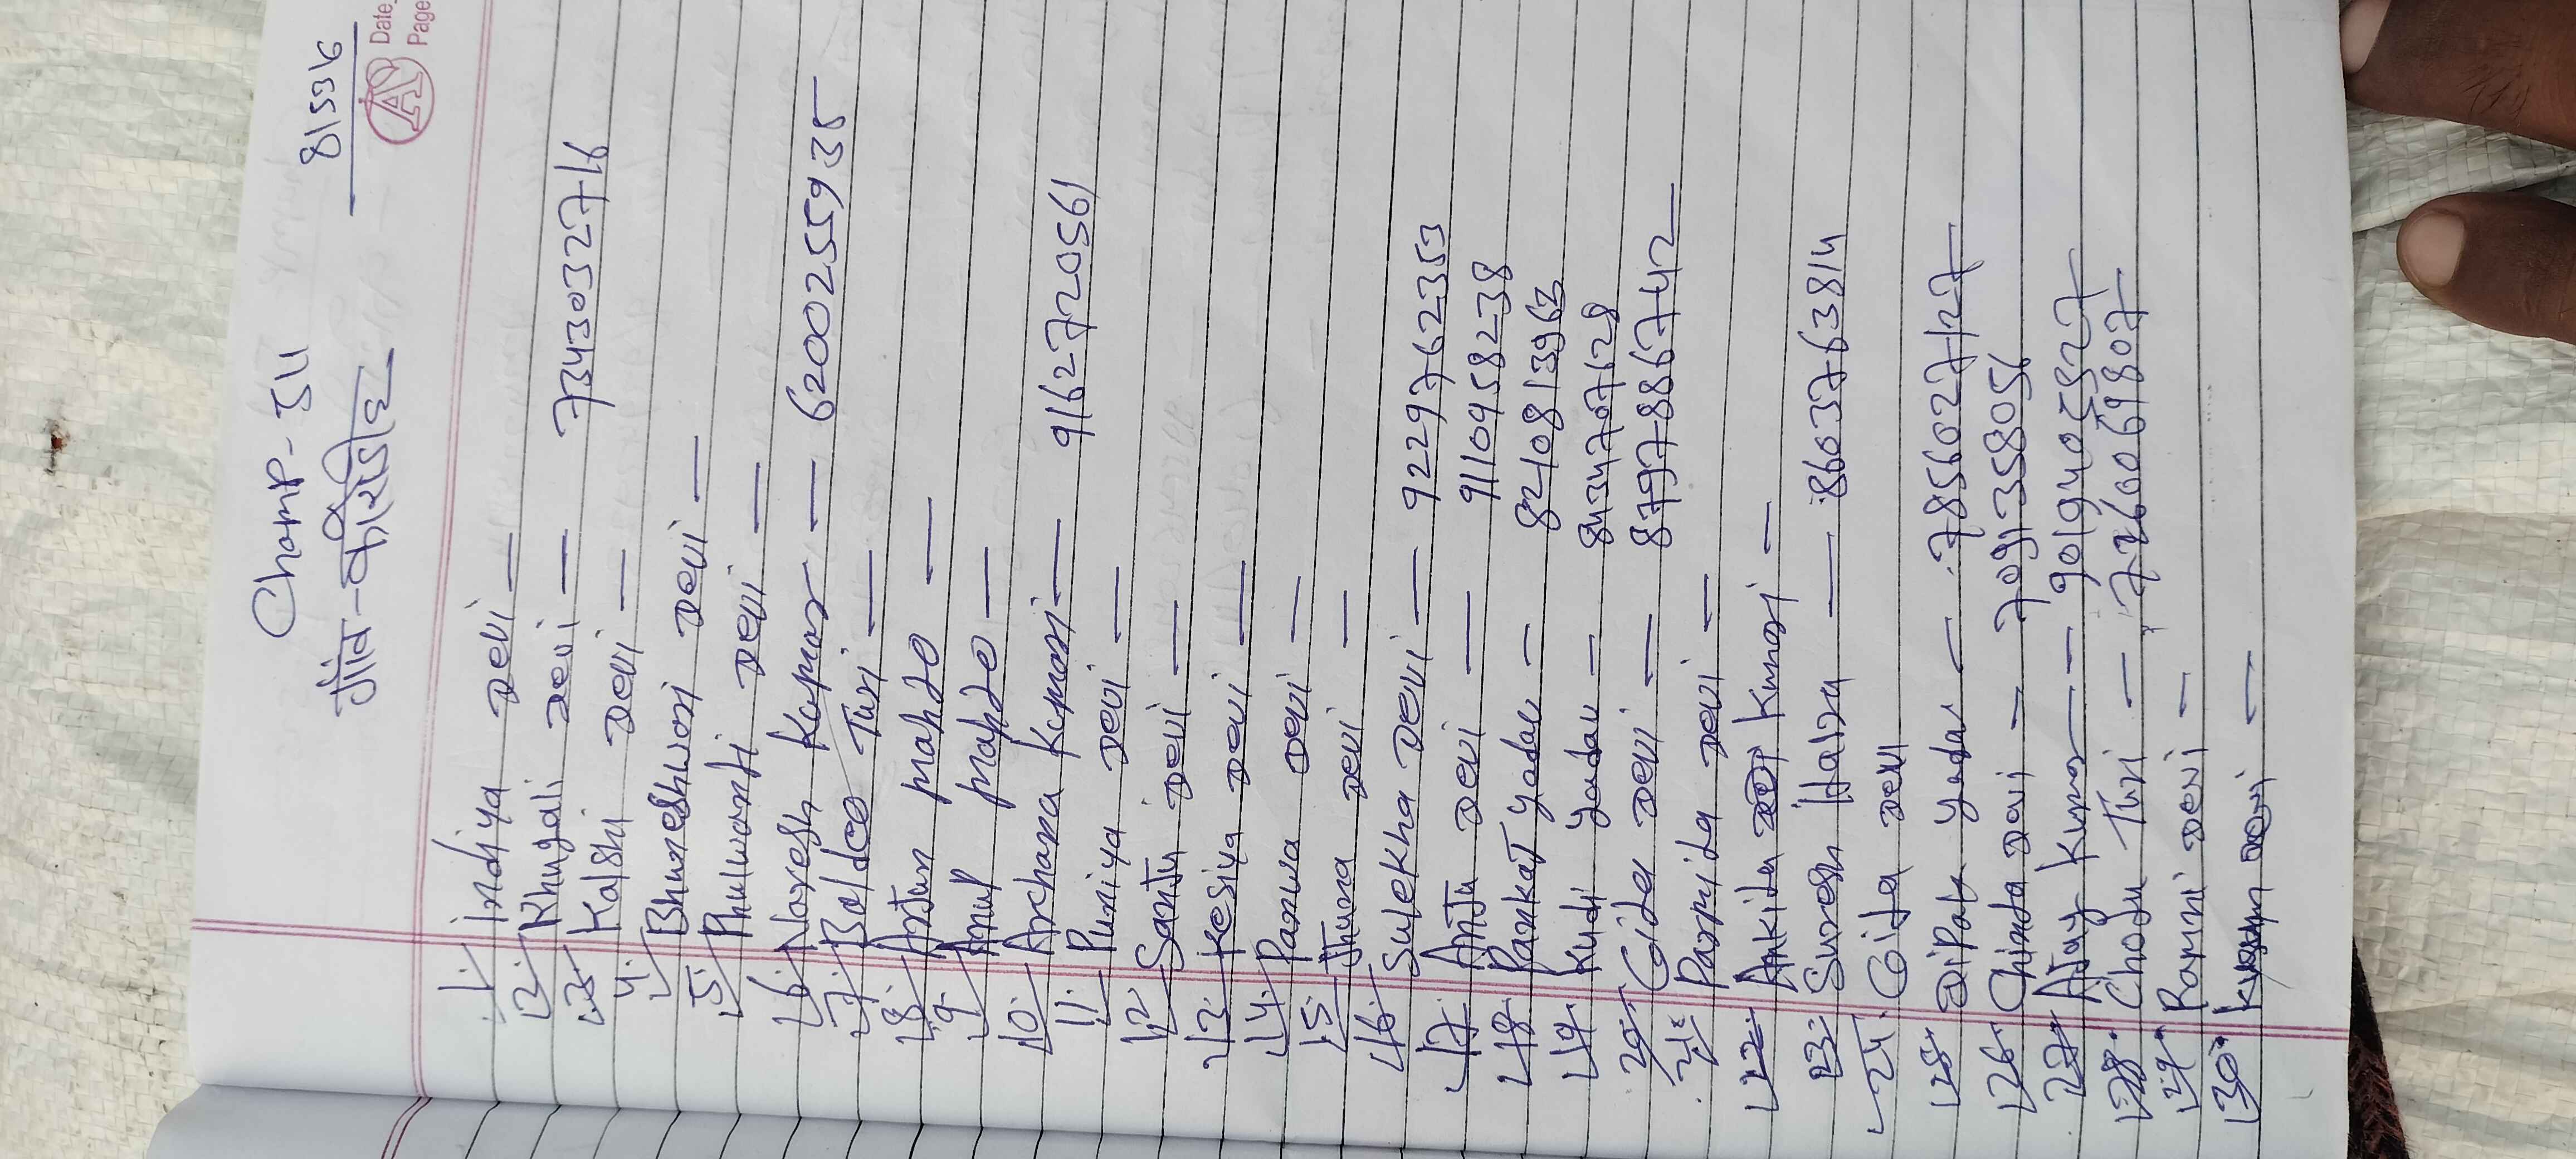 Champ-JU
815316
गाँव-करीडीह
Date
Page
1. Indiya Devi —
2. Khugali Devi — 7343032716
3. Kalshi Devi —
4. Bhuneshwari Devi —
5. Phulwanti Devi —
6. Naresh Kumar — 6200255935
7. Baldeo Turi —
8. Arjun mahto —
9. Anup mahto —
10. Archana Kumari — 9162720561
11. Puniya Devi —
12. Sanju Devi —
13. Kesiya Devi —
14. Panwa Devi —
15. Jhuna Devi —
16. Sulekha Devi — 9229762353
17. Anju Devi — 9110958238
18. Pankaj Yadav — 8210813963
19. Kundi Yadav — 8434707628
20. Gita Devi — 8797886742
21. Parmila Devi —
22. Ankita Kumari —
23. Suresh Hajra — 8603763814
24. Gita Devi
25. Dipak Yadav — 7856027127
26. Chinta Devi — 7091358056
27. Ajay Kumar — 9019405527
28. Chotu Turi — 7260069807
29. Ramni Devi —
30. Devi —